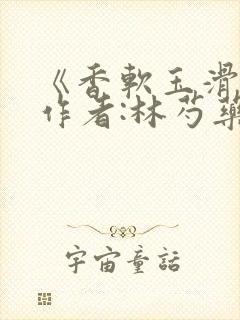 《香軟玉滑
作者:林芍藥
宇宙童話